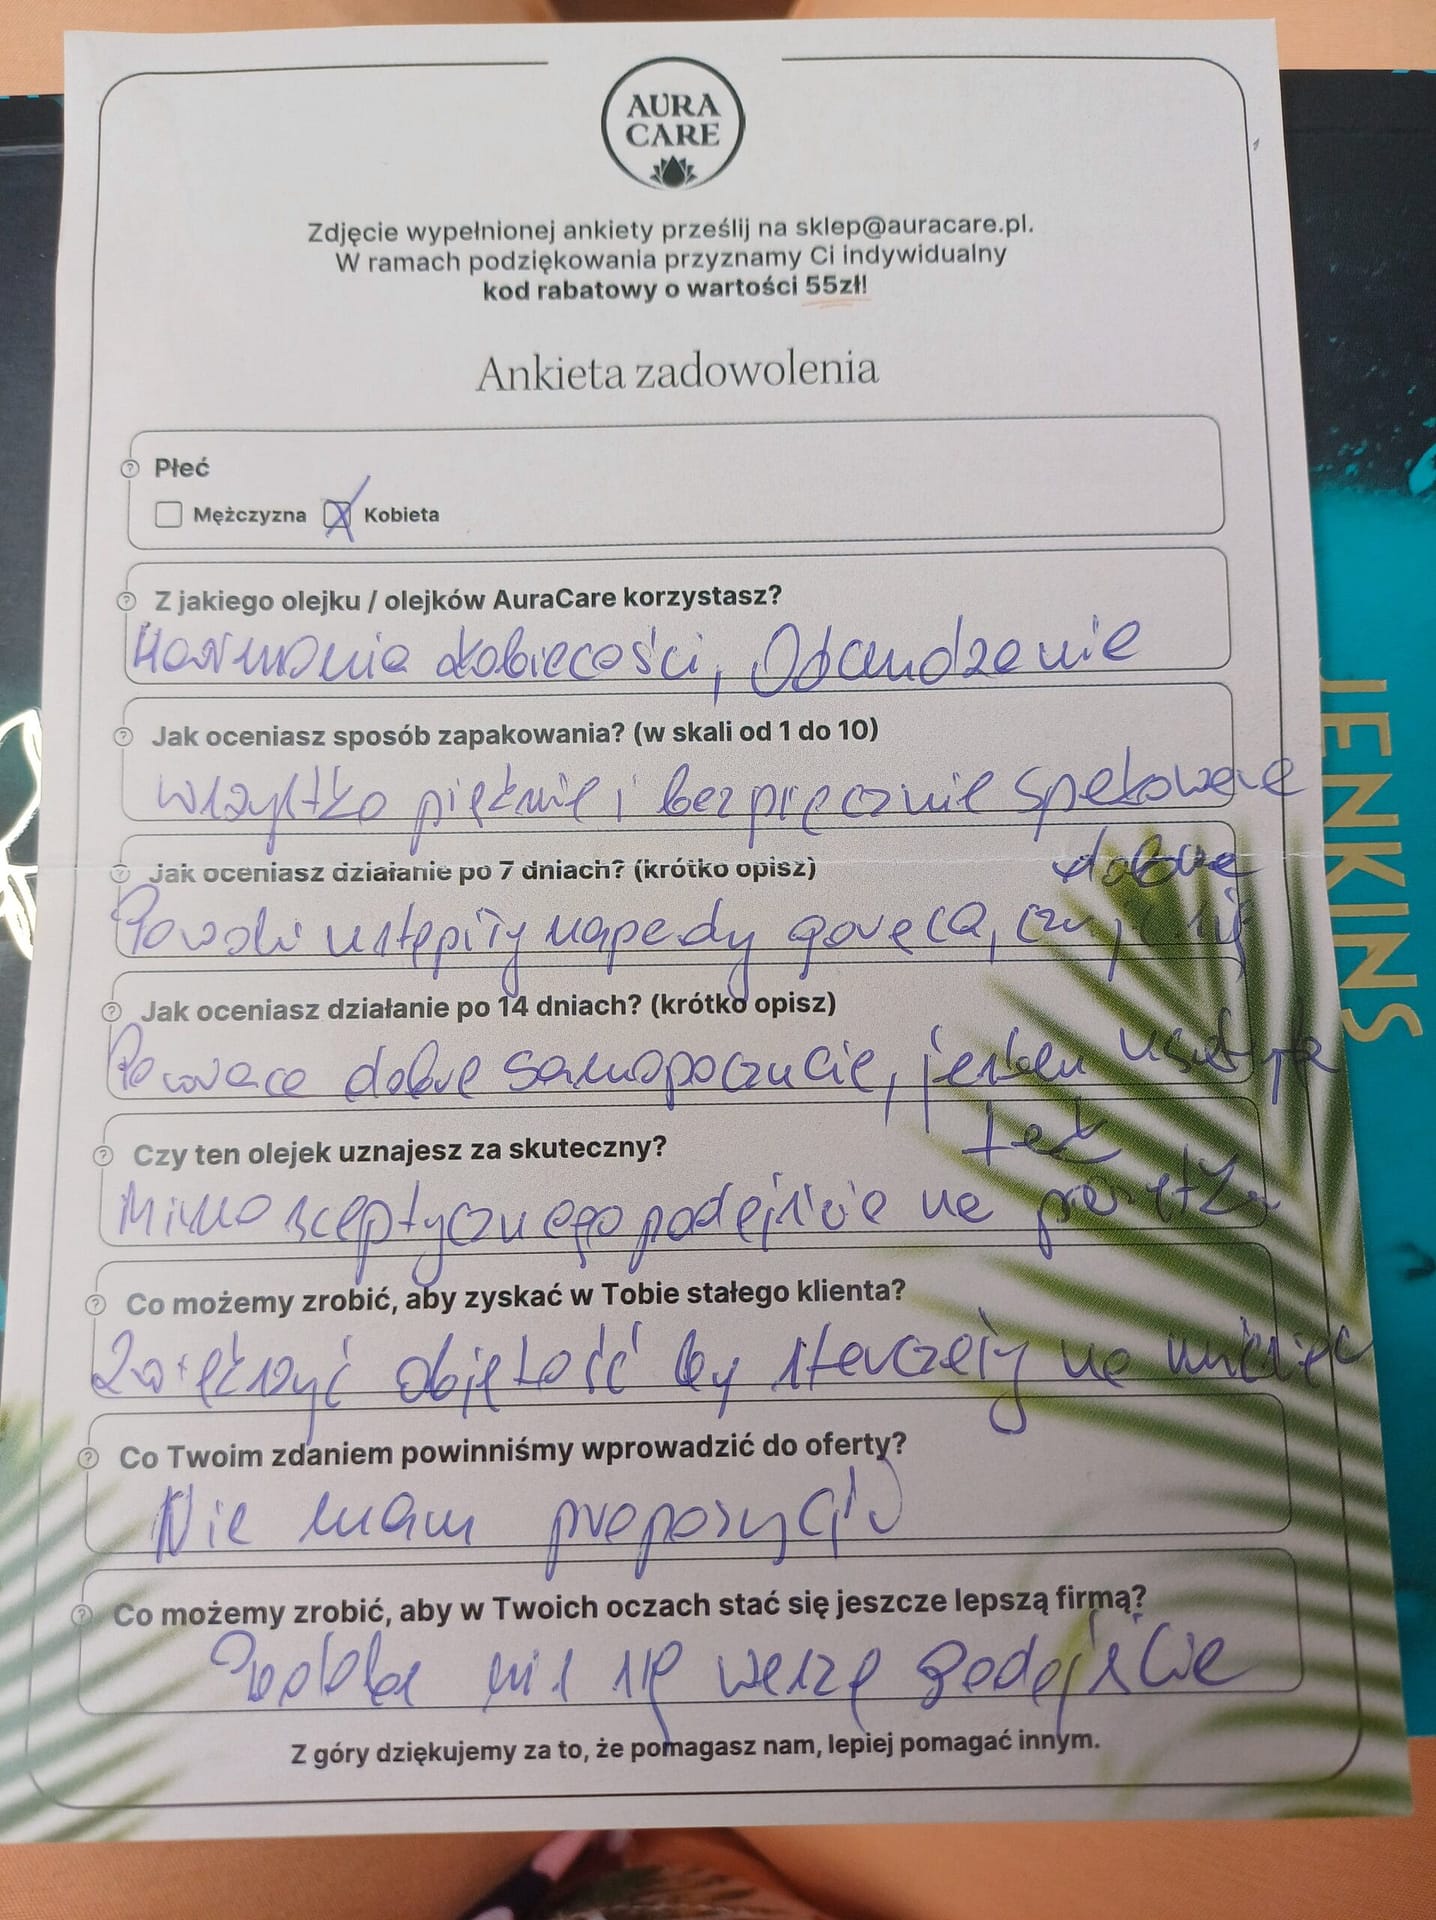 AURA
CARE
Zdjęcie wypełnionej ankiety prześlij na sklep@auracare.pl.
W ramach podziękowania przyznamy Ci indywidualny
kod rabatowy o wartości 55zł!
Ankieta zadowolenia
Płeć
Mężczyzna Kobieta
Z jakiego olejku / olejków AuraCare korzystasz?
Harmonia kobiecości, Odchudzanie
Jak oceniasz sposób zapakowania? (w skali od 1 do 10)
Wszystko pięknie i bezpiecznie spakowane
Jak oceniasz działanie po 7 dniach? (krótko opisz)
dobrze
Powoli ustępiły napady gorąca, czuję się
Jak oceniasz działanie po 14 dniach? (krótko opisz)
dobre samopoczucie, jestem
Czy ten olejek uznajesz za skuteczny?
tak
Mimo sceptycznego podejście na początku
Co możemy zrobić, aby zyskać w Tobie stałego klienta?
Zwiększyć objętość by starczały na miesiąc
Co Twoim zdaniem powinniśmy wprowadzić do oferty?
Nie mam propozycji
Co możemy zrobić, aby w Twoich oczach stać się jeszcze lepszą firmą?
Podoba mi się wasze podejście
Z góry dziękujemy za to, że pomagasz nam, lepiej pomagać innym.
JENKINS